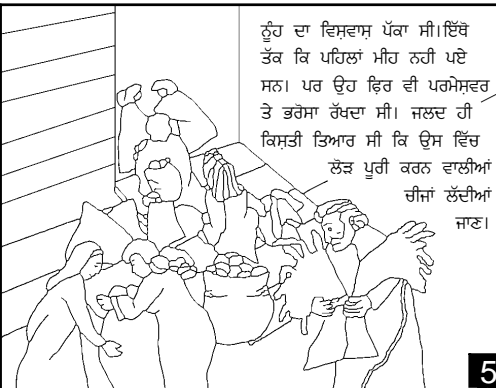 ਨੂੰਹ ਦਾ ਵਿਸ਼ਵਾਸ਼ ਪੱਕਾ ਸੀ।ਇੱਥੋ
ਤੱਕ ਕਿ ਪਹਿਲਾਂ ਮੀਹ ਨਹੀ ਪਏ
ਸਨ। ਪਰ ਉਹ ਫ਼ਿਰ ਵੀ ਪਰਮੇਸ਼ਵਰ
ਤੇ ਭਰੋਸਾ ਰੱਖਦਾ ਸੀ। ਜਲਦ ਹੀ
ਕਿਸ਼ਤੀ ਤਿਆਰ ਸੀ ਕਿ ਉਸ ਵਿੱਚ
ਲੋੜ ਪੂਰੀ ਕਰਨ ਵਾਲੀਆਂ
ਚੀਜਾਂ ਲੱਦੀਆਂ
ਜਾਣ।
5